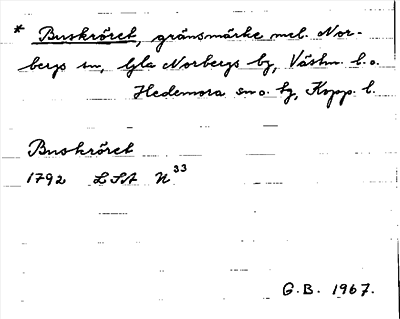 * Buskröret, gränsmärke mel. Nor-
bergs sn, Gla Norbergs bg, Västm. l. o.
Hedemora sn o. bg, Kopp. l.
Buskröret
1792 LSA N³³
G.B. 1967.